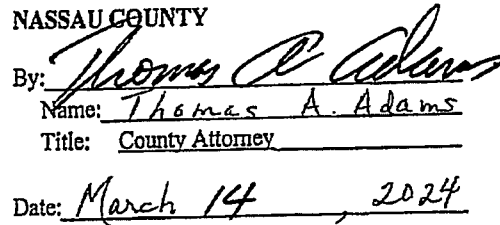 NASSAU COUNTY
By: Thomas A Adams
Name: Thomas A. Adams
Title: County Attorney
Date: March 14, 2024